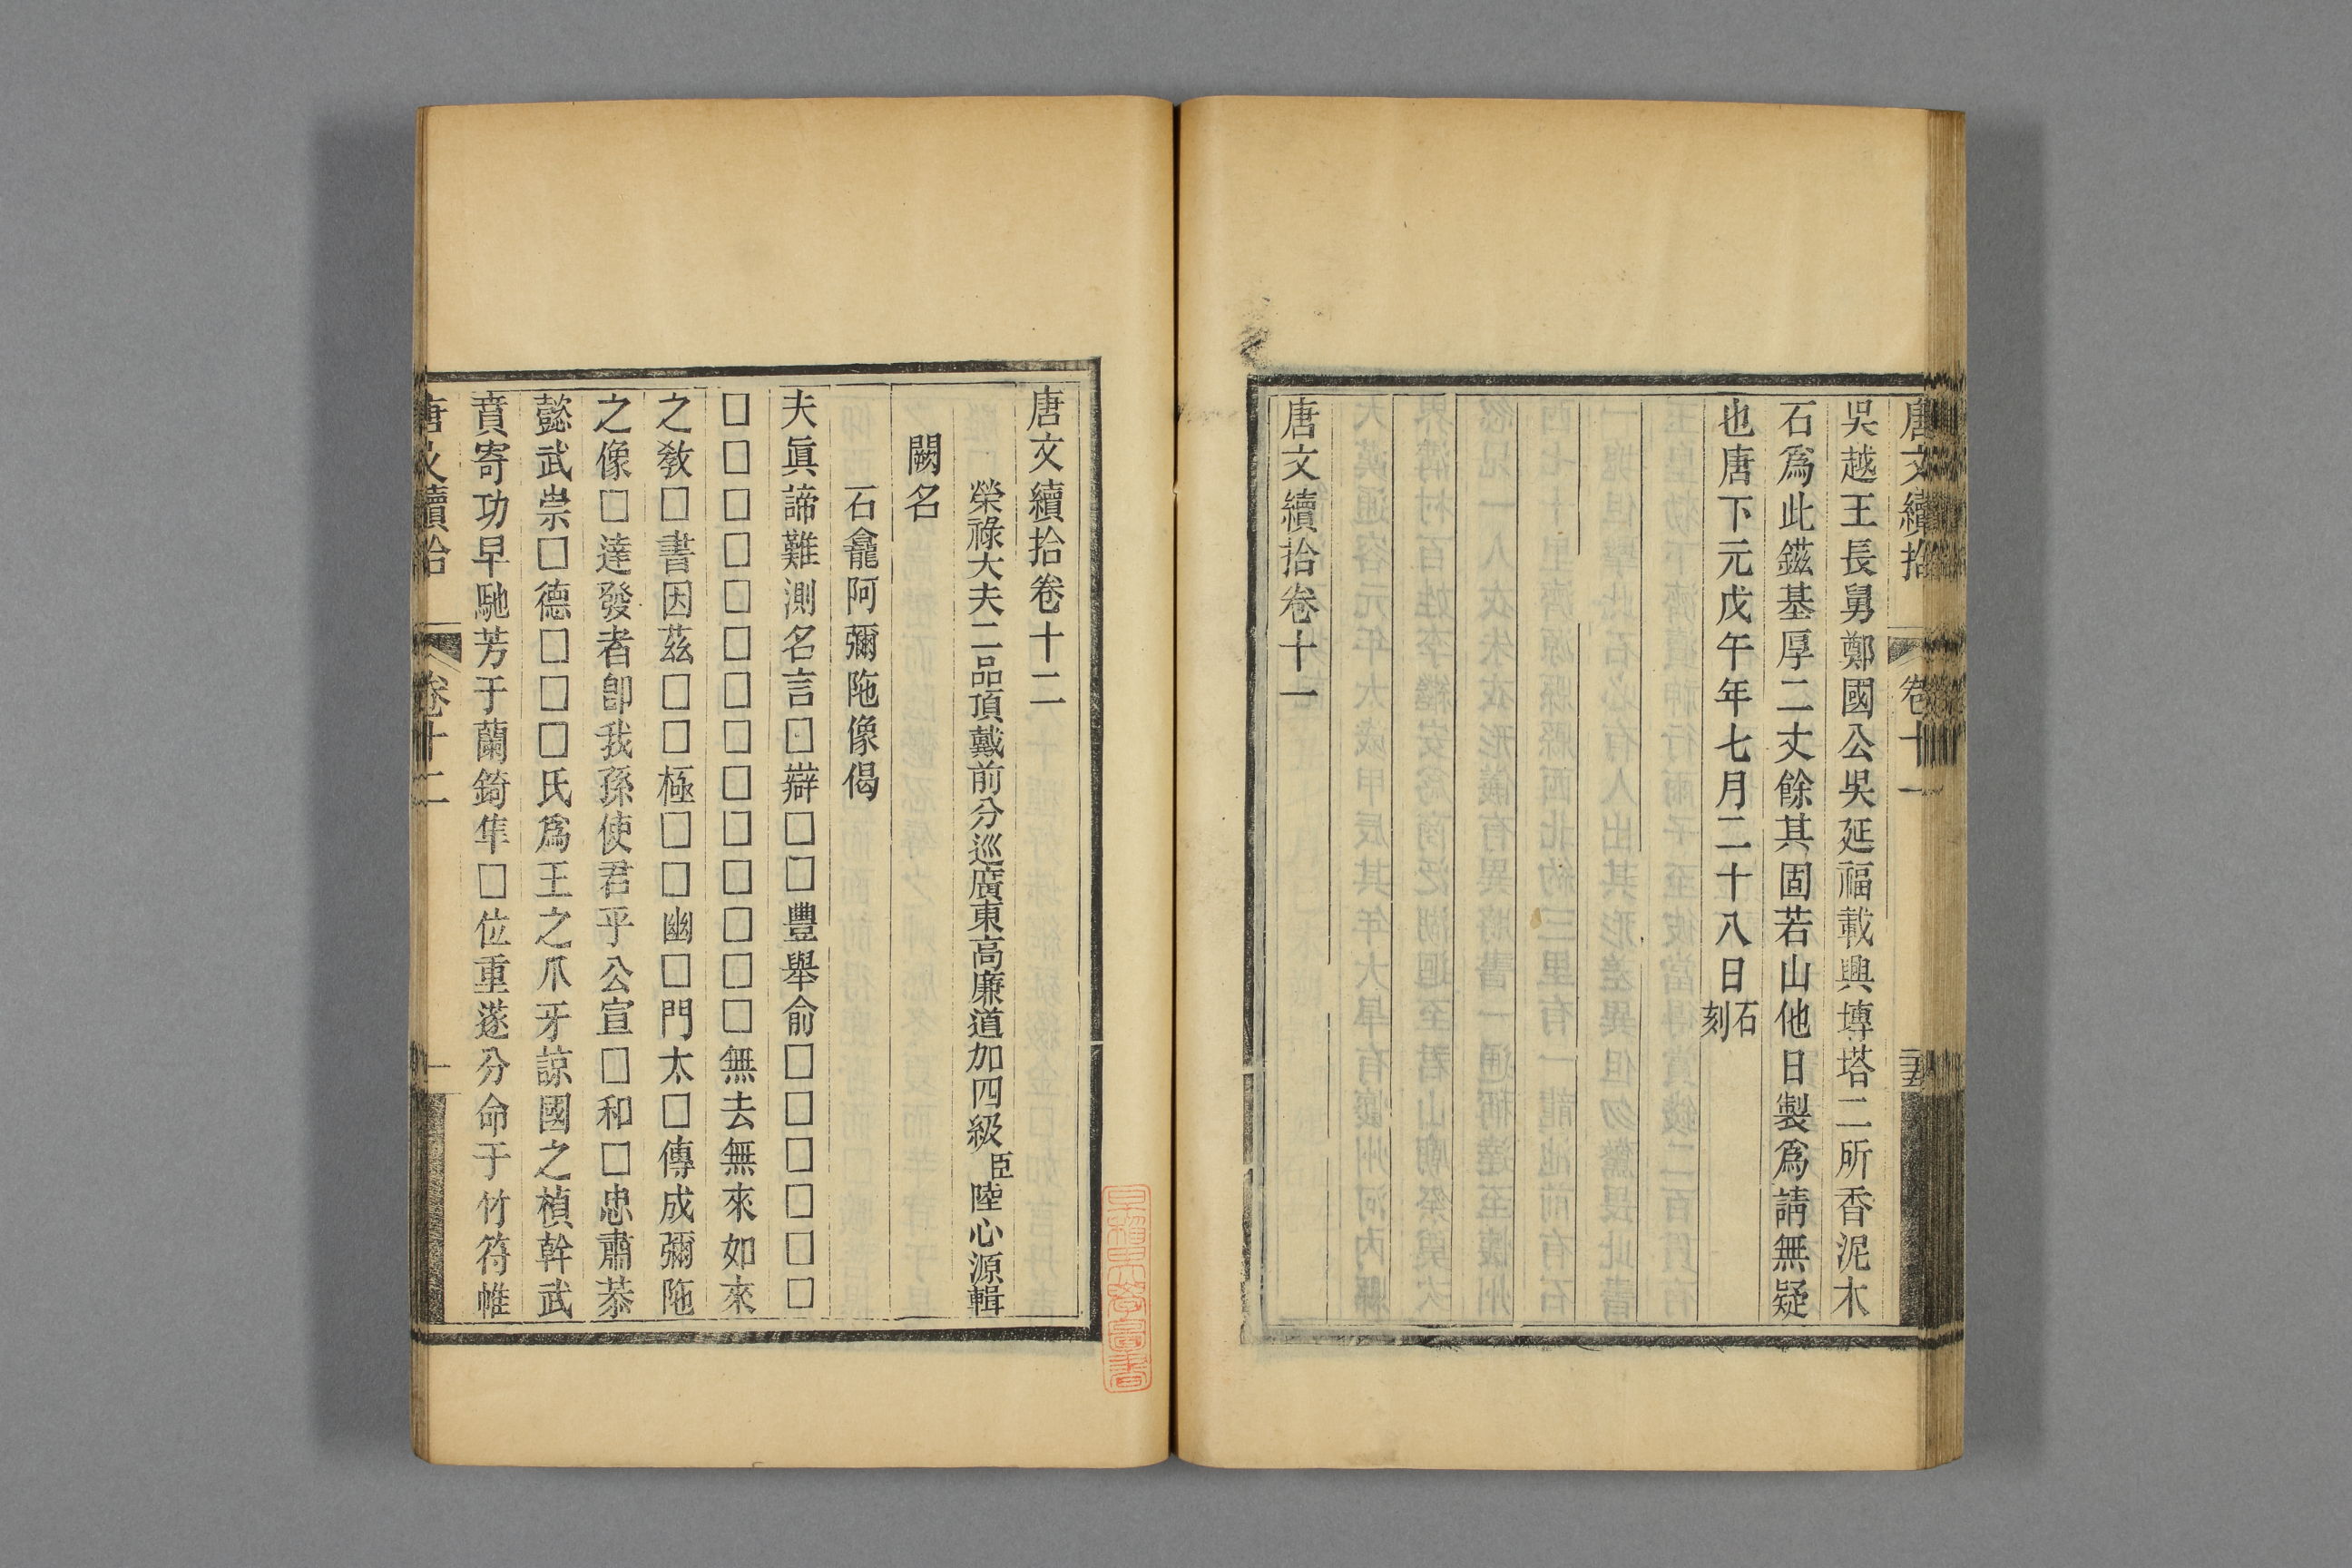 唐文續拾
卷十一
吳越王長舅鄭國公吳延福載興塼塔二所香泥木
石爲此鎡基厚二丈餘其固若山他日製爲請無疑
也唐下元戊午年七月二十八日石刻
唐文續拾卷十一
唐文續拾卷十二
榮祿大夫二品頂戴前分巡廣東高廉道加四級臣陸心源輯
闕名
石龕阿彌陁像偈
夫眞諦難測名言□辯□□豐舉俞□□□□□□
□□□□□□□□□□□□□□無去無來如來
之敎□書因茲□□極□□幽□門太□傳成彌陁
之像□達發者卽我孫使君乎公宣□和□忠肅恭
懿武崇□德□□□氏爲王之爪牙諒國之楨幹武
賁寄功早馳芳于蘭錡隼□位重遂分命于竹符帷
唐文續拾
卷十二
一
早稻田大學圖書